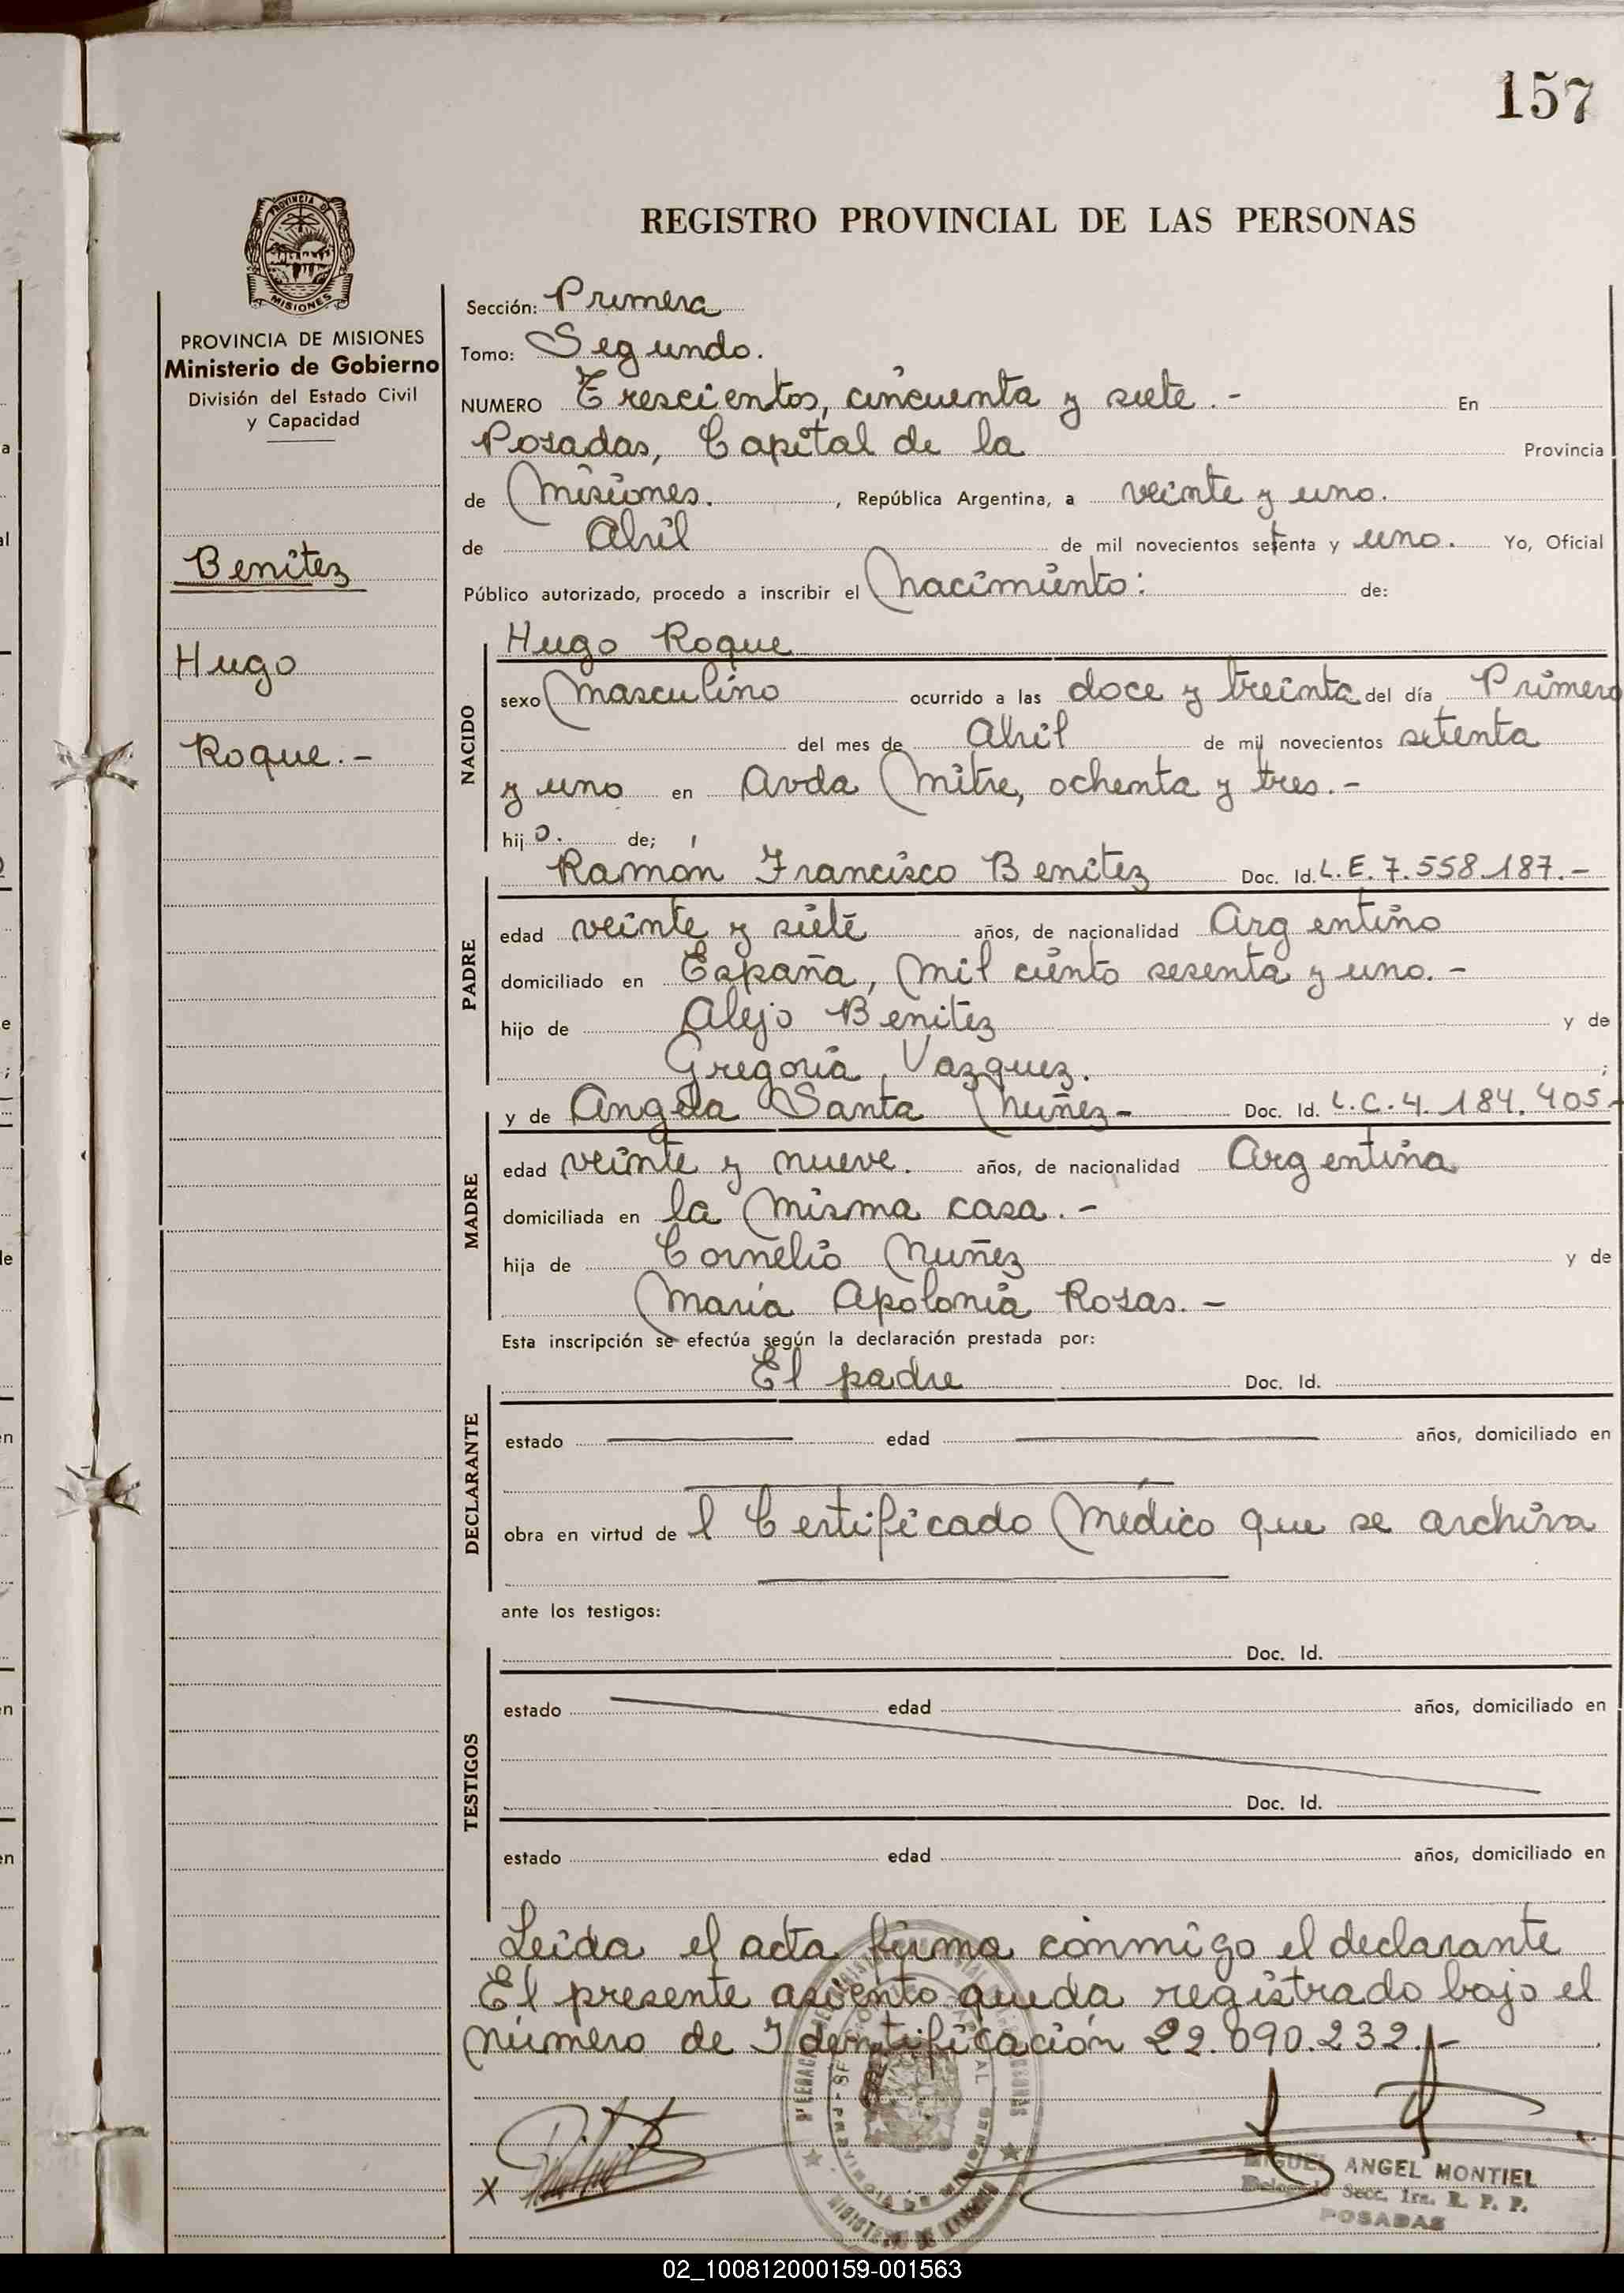 157
REGISTRO PROVINCIAL DE LAS PERSONAS
PROVINCIA DE
MISIONES
PROVINCIA DE MISIONES
Ministerio de Gobierno
División del Estado Civil
y Capacidad
Benitez
Hugo
Roque.-
Sección: Primera
Tomo: Segundo.
NUMERO Trescientos, cincuenta y siete.- En
Posadas, Capital de la Provincia
de Misiones. , República Argentina, a veinte y uno.
de Abril de mil novecientos setenta y uno. Yo, Oficial
Público autorizado, procedo a inscribir el Nacimiento: de:
NACIDO
Hugo Roque
sexo Masculino ocurrido a las doce y treinta del día Primero
del mes de Abril de mil novecientos setenta
y uno en Avda Mitre, ochenta y tres.-
hijo. de;
PADRE
Ramón Francisco Benitez Doc. Id. L.E. 7.558.187.-
edad veinte y siete años, de nacionalidad Argentino
domiciliado en España, Mil ciento sesenta y uno.-
hijo de Alejo Benitez y de
Gregoria Vazquez. ;
MADRE
y de Angela Santa Nuñez- Doc. Id. L.C. 4.184.405-
edad veinte y nueve. años, de nacionalidad Argentina
domiciliada en la misma casa.-
hija de Cornelio Nuñez y de
María Apolonia Rosas.-
Esta inscripción se efectúa según la declaración prestada por:
DECLARANTE
El padre Doc. Id.
estado edad años, domiciliado en
obra en virtud del Certificado Médico que se archiva
ante los testigos:
TESTIGOS
Doc. Id.
estado edad años, domiciliado en
Doc. Id.
estado edad años, domiciliado en
Leida el acta firma conmigo el declarante
El presente asiento queda registrado bajo el
Número de Identificación 22.090.232.-
X
MIGUEL ANGEL MONTIEL
Secc. 1ra. R. P. P.
POSADAS
02_100812000159-001563